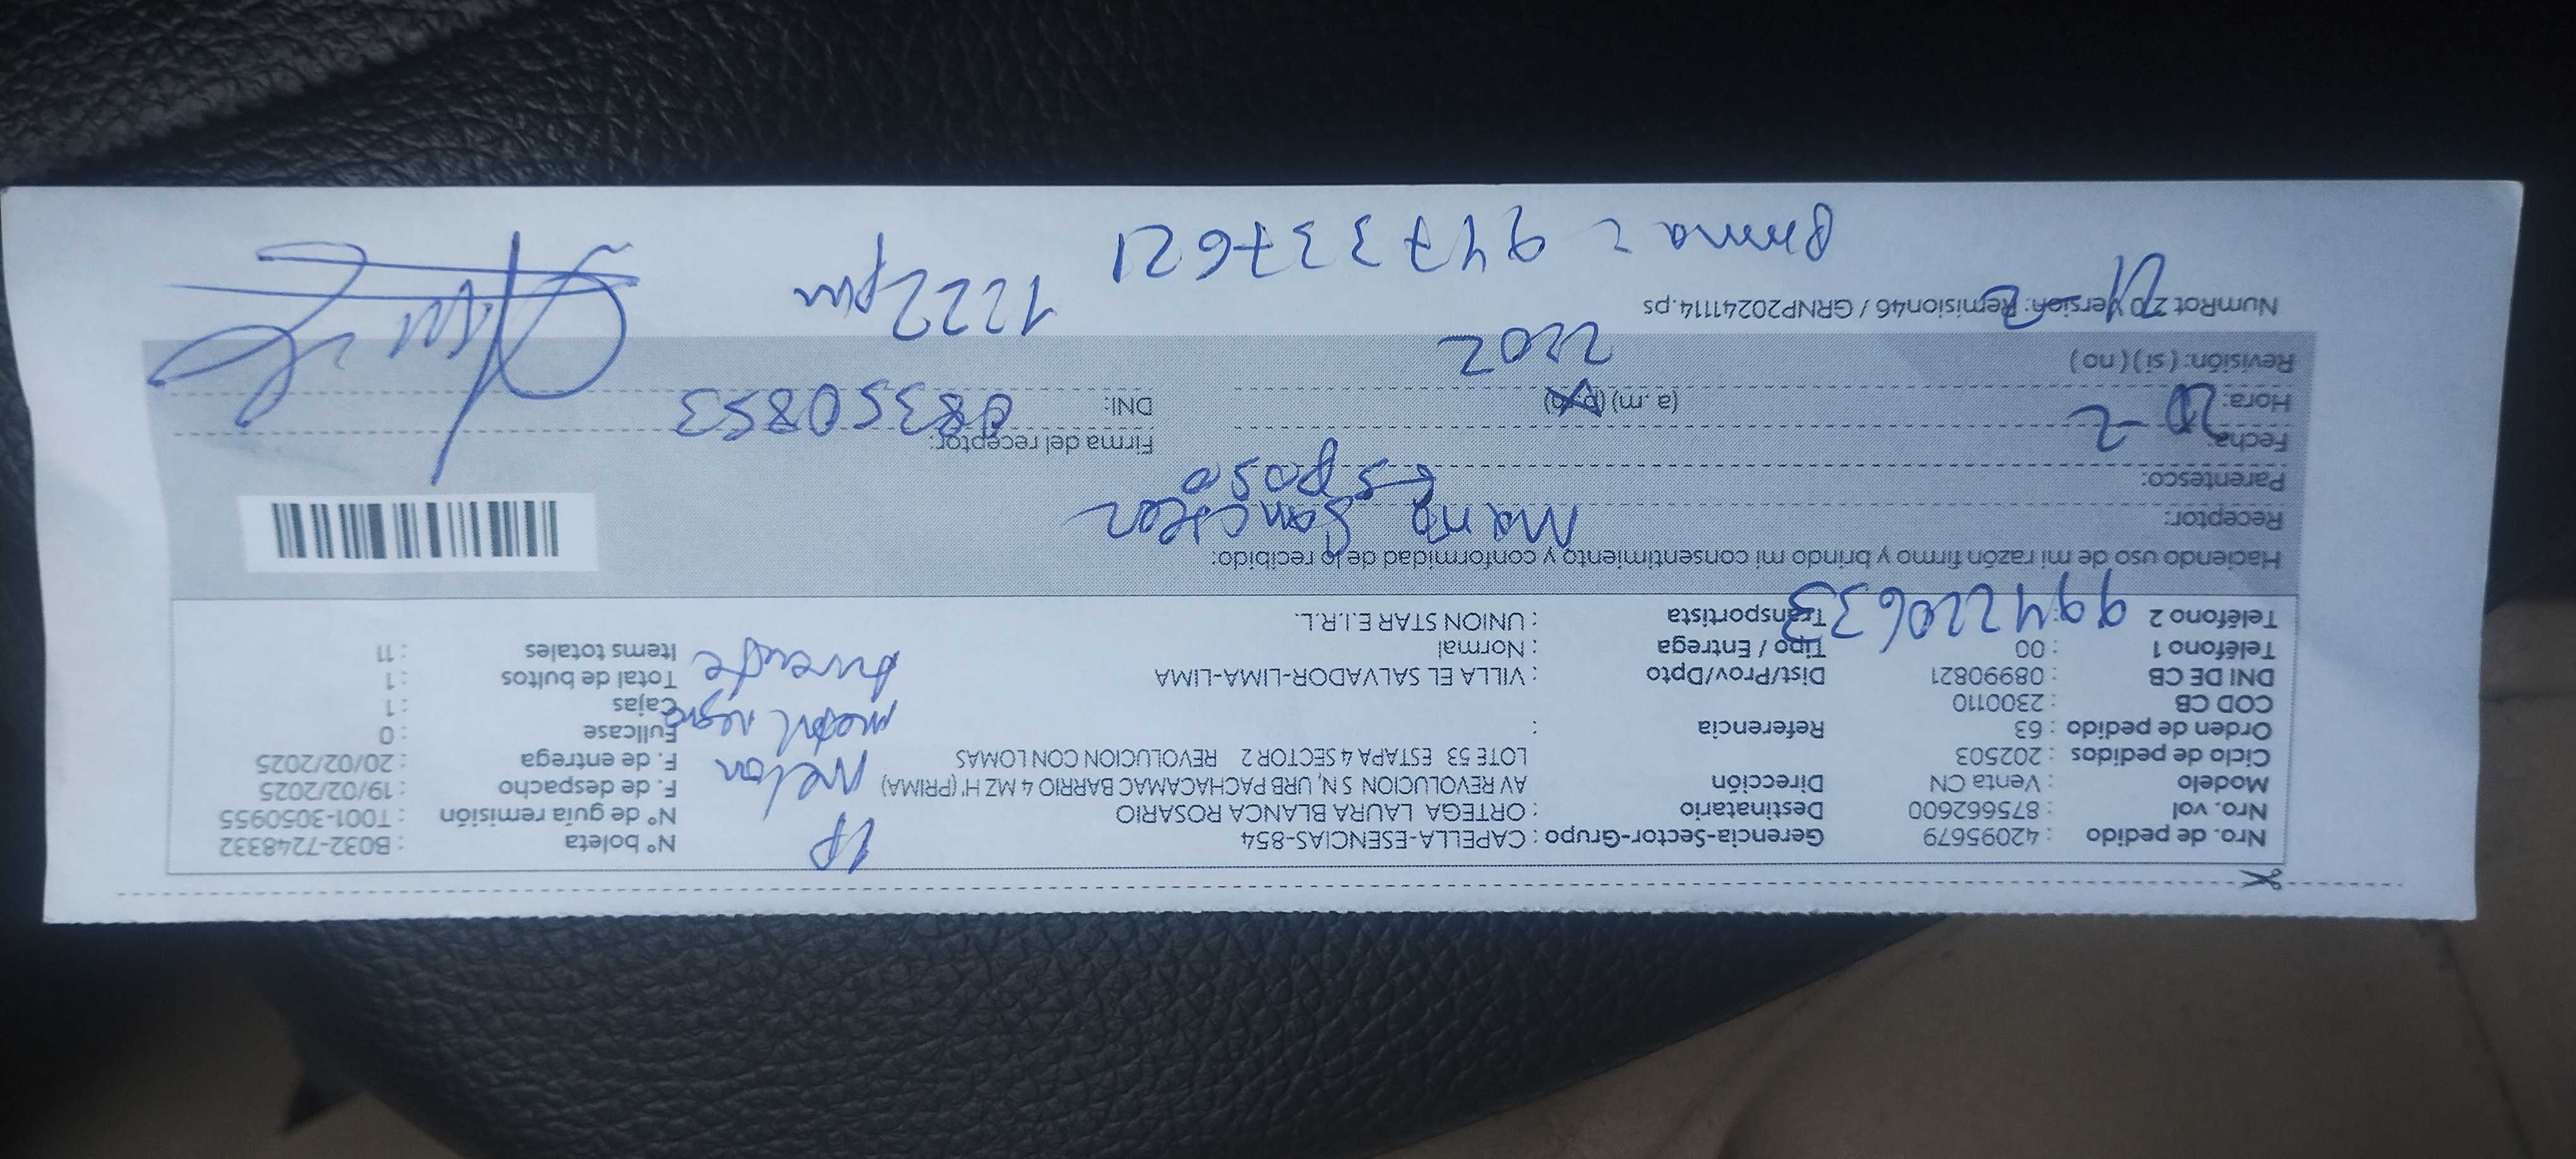 Nro. de pedido : 42095679 Gerencia-Sector-Grupo : CAPELLA-ESENCIAS-854 1P N° boleta : B032-7248332
Nro. vol : 875662600 Destinatario : ORTEGA LAURA BLANCA ROSARIO N° de guía remisión : T001-3050955
Modelo : Venta CN Dirección AV REVOLUCION S N, URB PACHACAMAC BARRIO 4 MZ H' (PRIMA) melon F. de despacho : 19/02/2025
Ciclo de pedidos : 202503 LOTE 53 ESTAPA 4 SECTOR 2 REVOLUCION CON LOMAS F. de entrega : 20/02/2025
Orden de pedido : 63 Referencia : metal negro Fullcase : 0
COD CB : 2300110 Cajas : 1
DNI DE CB : 08990821 Dist/Prov/Dpto : VILLA EL SALVADOR-LIMA-LIMA Total de bultos : 1
Teléfono 1 : 00 Tipo / Entrega : Normal Items totales : 11
Teléfono 2 : 994220633 Transportista : UNION STAR E.I.R.L.
Haciendo uso de mi razón firmo y brindo mi consentimiento y conformidad de lo recibido:
Receptor:
Parentesco: esposo
Fecha: 20-2 Firma del receptor:
Hora: (a .m) (p.m) DNI: 08350853
Revisión: ( si ) ( no ) 2202
NumRot 2.0 Versión: Remision46 / GRNP20241114.ps 1222pm
947337621